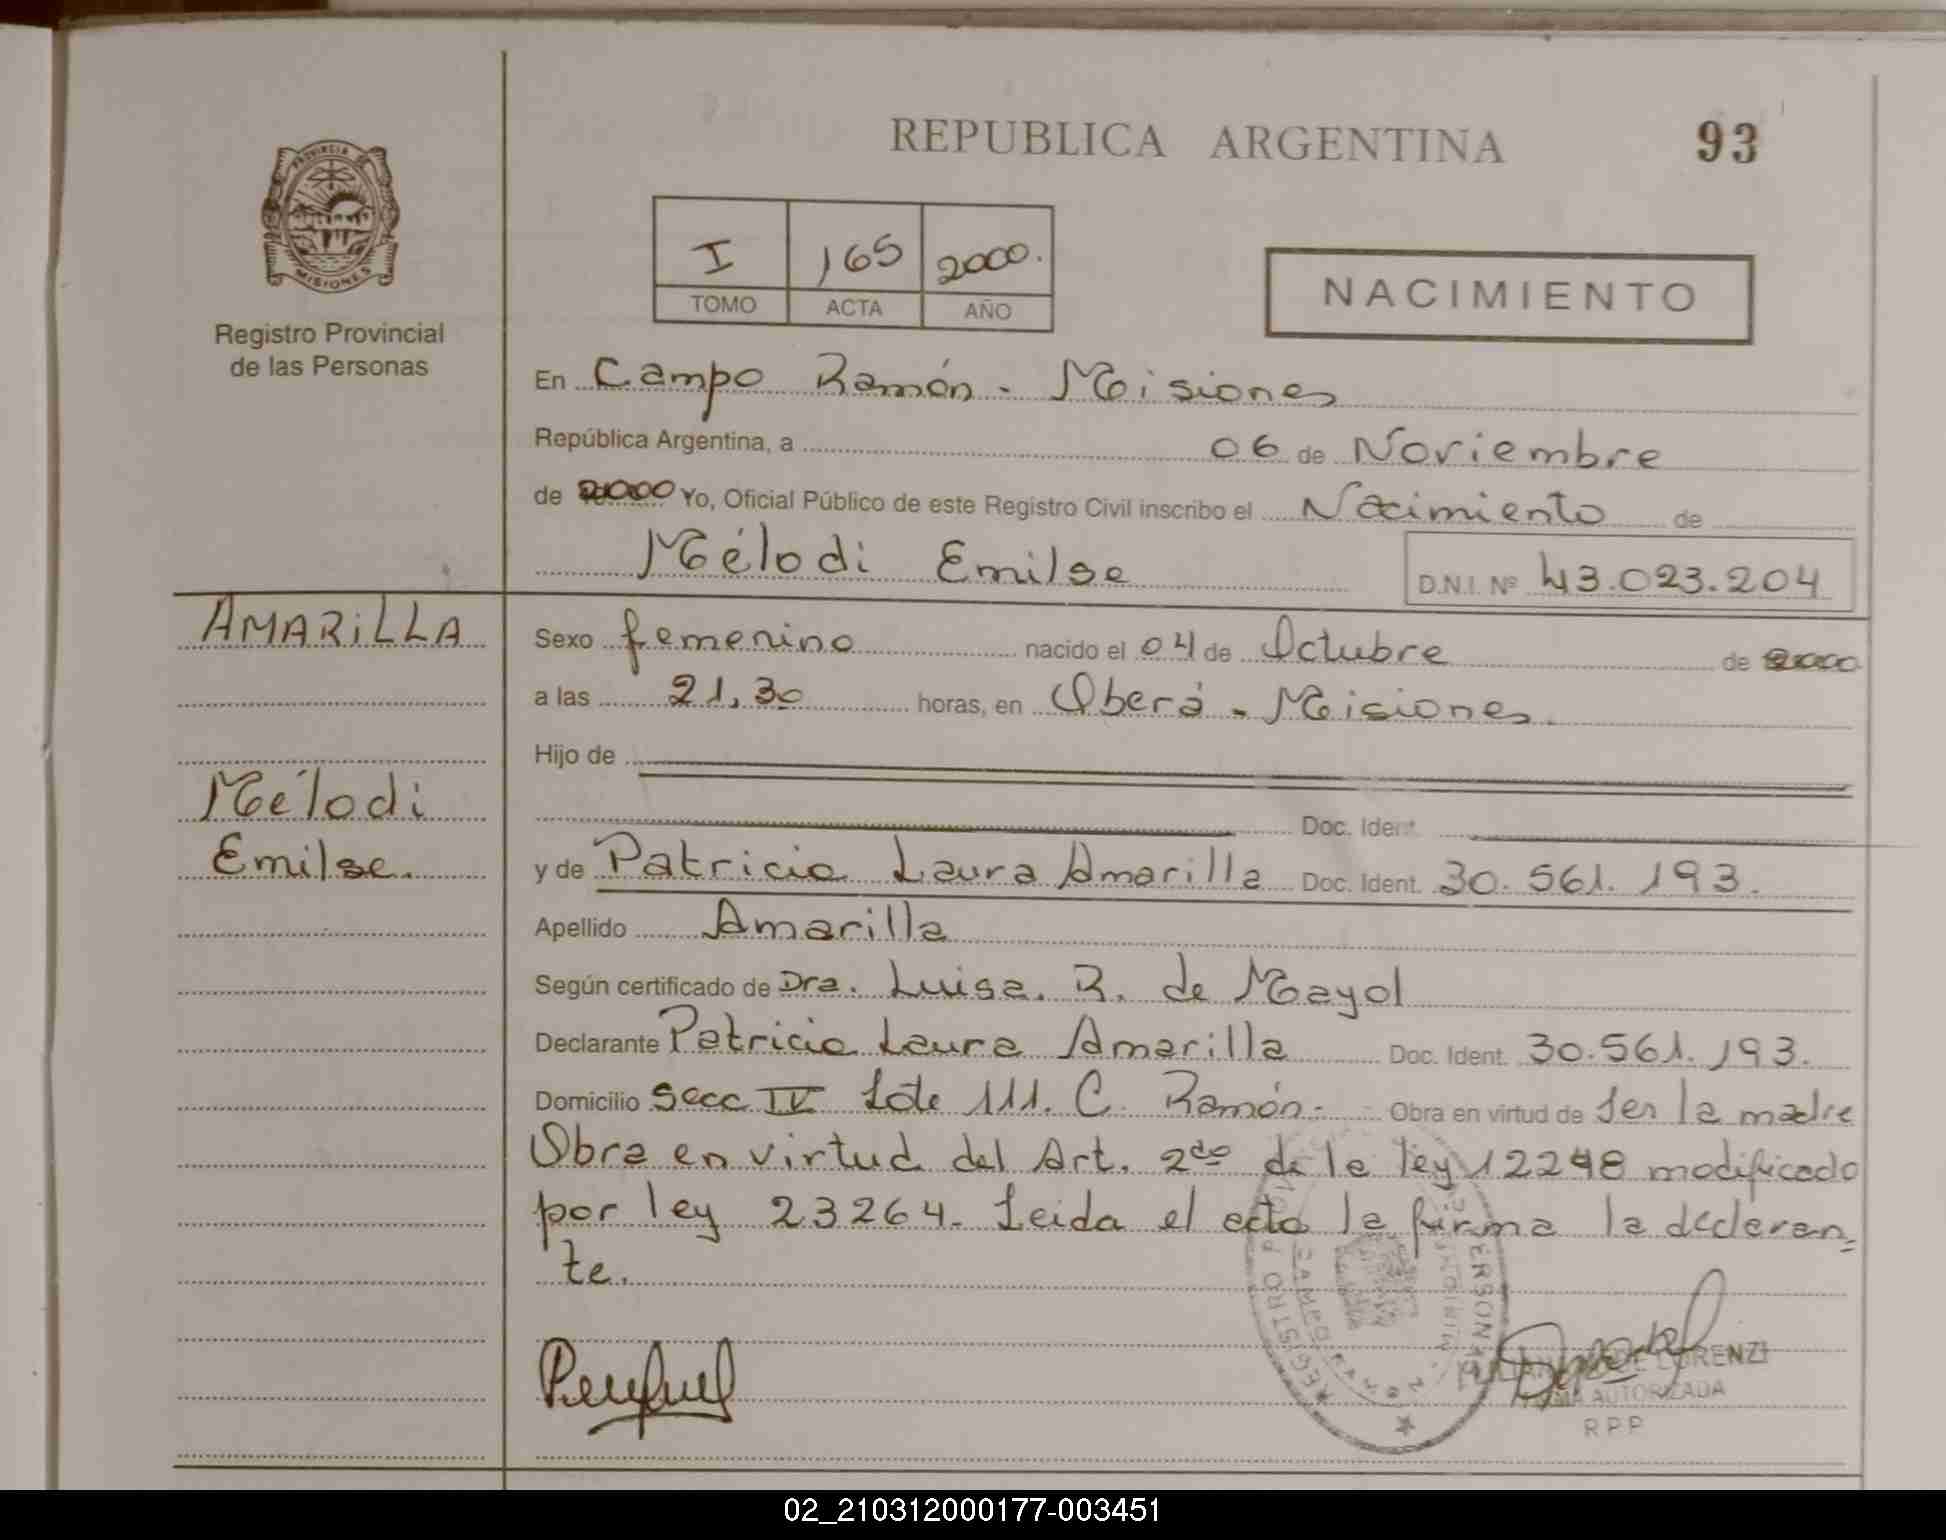 REPUBLICA ARGENTINA
93
PROVINCIA DE
MISIONES
Registro Provincial
de las Personas
I 165 2000.
TOMO ACTA AÑO
NACIMIENTO
En Campo Ramón - Misiones
República Argentina, a 06 de Noviembre
de 2000 Yo, Oficial Público de este Registro Civil inscribo el Nacimiento de
Mélodi Emilse D.N.I. Nº 43.023.204
AMARiLLA
Mélodi
Emilse.
Sexo femenino nacido el 04 de Octubre de 2000
a las 21,30 horas, en Oberá - Misiones.
Hijo de
Doc. Ident.
y de Patricia Laura Amarilla Doc. Ident. 30.561.193.
Apellido Amarilla
Según certificado de Dra. Luisa. R. de Mayol
Declarante Patricia Laura Amarilla Doc. Ident. 30.561.193.
Domicilio Secc IV Lote 111. C. Ramón. Obra en virtud de ser la madre
Obra en virtud del Art. 2do de la ley 12248 modificado
por ley 23264. Leida el acta la firma la declaran=
te.
REGISTRO P
PERSONAS
CAMPO RAMON
DE LORENZI
FIRMA AUTORIZADA
R P P
02_210312000177-003451